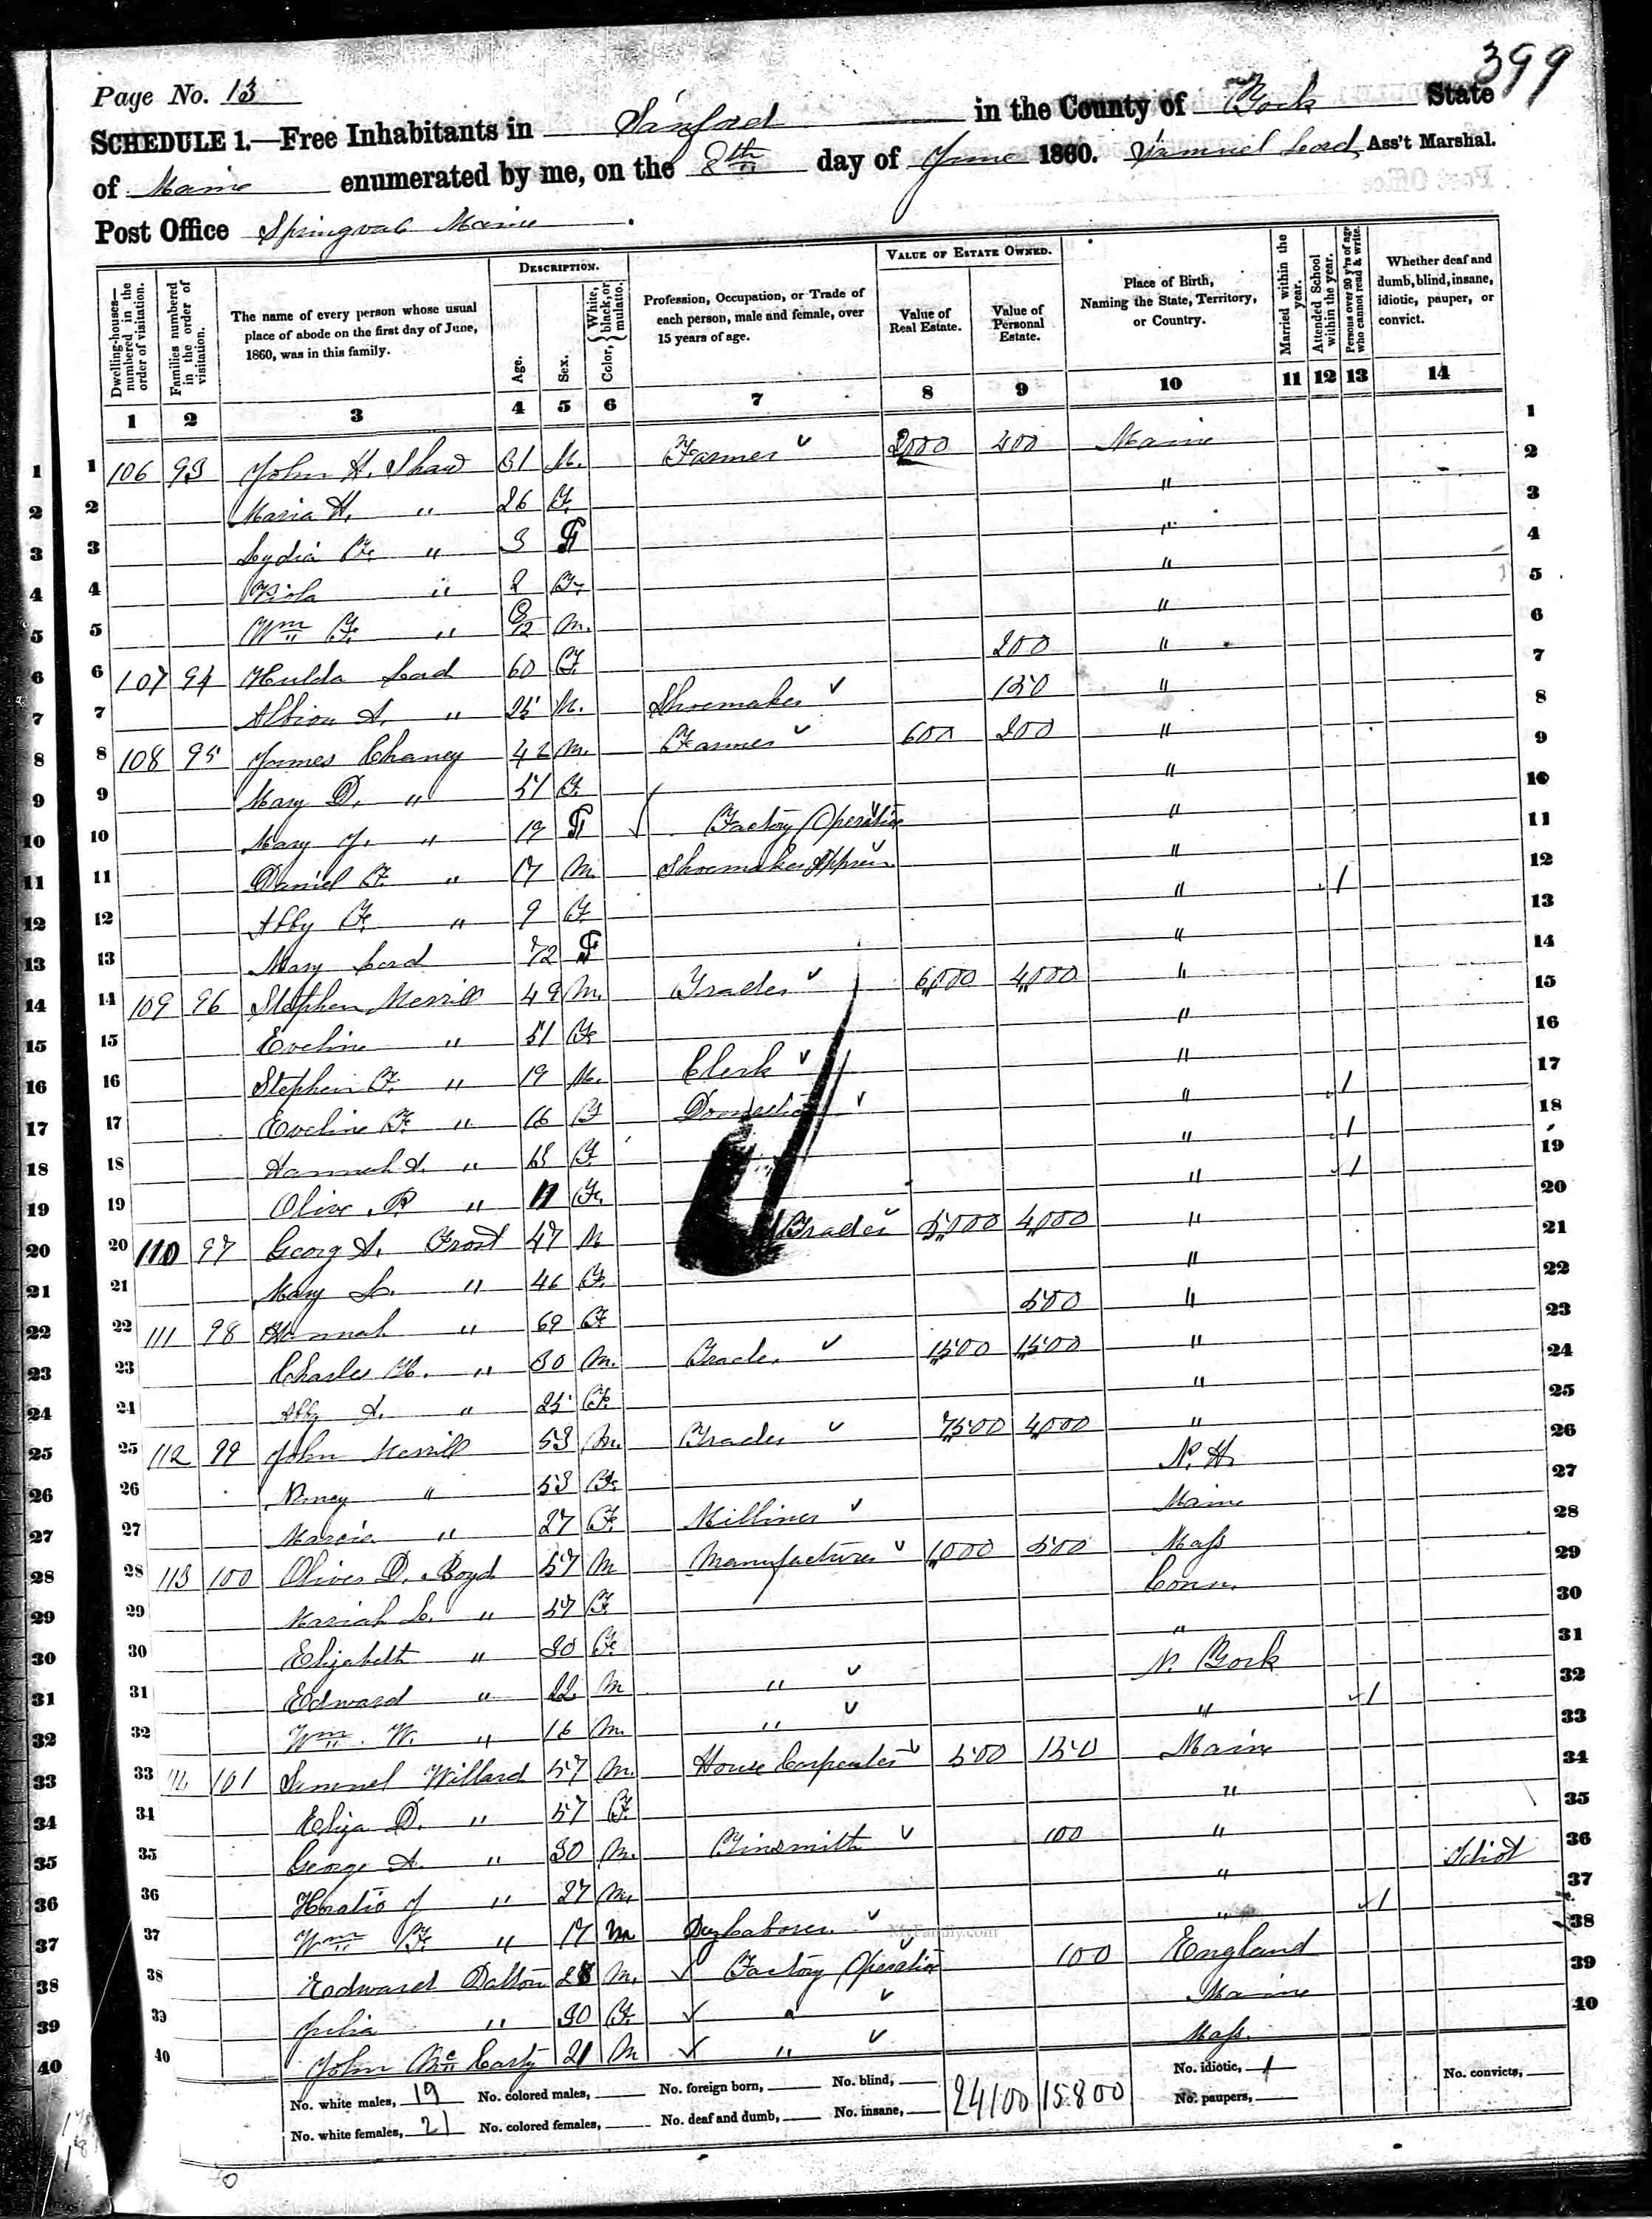 399
Page No. 13
SCHEDULE 1.—Free Inhabitants in Sanford in the County of York State
of Maine enumerated by me, on the 8th day of June 1860. Samuel Lord, Ass't Marshal.
Post Office Springvale Maine.
Dwelling-houses—numbered in the order of visitation. Families numbered in the order of visitation. The name of every person whose usual place of abode on the first day of June, 1860, was in this family. DESCRIPTION. Age. Sex. Color, White, black, or mulatto. Profession, Occupation, or Trade of each person, male and female, over 15 years of age. VALUE OF ESTATE OWNED. Value of Real Estate. Value of Personal Estate. Place of Birth, Naming the State, Territory, or Country. Married within the year. Attended School within the year. Persons over 20 y'rs of age who cannot read & write. Whether deaf and dumb, blind, insane, idiotic, pauper, or convict.
1 2 3 4 5 6 7 8 9 10 11 12 13 14
1 106 93 John H. Shaw 31 M. Farmer 2000 400 Maine 1
2 Maria H. " 26 F. " 2
3 Lydia F. " 3 F " 3
4 Viola " 2 F. " 4
5 Wm F. " 8/12 M. " 5
6 107 94 Hulda Lord 60 F. 200 " 6
7 Albion A. " 25 M. Shoemaker 150 " 7
8 108 95 James Chaney 42 M. Farmer 600 200 " 8
9 Mary D. " 51 F. " 9
10 Mary J. " 19 F Factory Operative " 10
11 Daniel F. " 17 M Shoemaker Appren " 11
12 Abby F. " 9 F. " 1 12
13 Mary Lord 72 F " 13
14 109 96 Stephen Merrill 49 M. Trader 6,000 4,000 " 14
15 Eveline " 51 F. " 15
16 Stephen F. " 19 M. Clerk " 16
17 Eveline F. " 16 F Domestic " 1 17
18 Hannah A. " F. " 1 18
19 Olive R " 11 F. " 1 19
20 110 97 Georg A. Frost 47 M Trader 5,000 4,000 " 20
21 Mary L. " 46 F. " 21
22 111 98 Hannah " 69 F 500 " 22
23 Charles H. " 30 M. Trader 1,500 1,500 " 23
24 Abby A. " 25 F. " 24
25 112 99 John Merrill 53 M. Trader 7,500 4,000 " 25
26 Nancy " 53 F. N. H. 26
27 Marcia " 27 F. Milliner Maine 27
28 113 100 Oliver D. Boyd 57 M Manufacturer 1,000 500 Mass 28
29 Mariah L. " 57 F. Conn. 29
30 Elizabeth " 30 F. " 30
31 Edward " 22 M " N. York 31
32 Wm. W. " 16 M. " " 1 32
33 101 Samuel Willard 57 M. House Carpenter 500 150 Maine 33
34 Eliza D. " 57 F. " 34
35 George A. " 30 M. Tinsmith 100 " 35
36 Horatio J " 27 M. " Idiot 36
37 Wm F. " 17 M Day Laborer " 1 37
38 Eedward Dalton 28 M. Factory Operative 100 England 38
39 Julia " 30 F. " Maine 39
40 John McCarty 21 M " Mass. 40
No. white males, 19 No. colored males, No. foreign born, No. blind, 24100 15800 No. idiotic, 1 No. convicts,
No. white females, 21 No. colored females, No. deaf and dumb, No. insane, No. paupers,
MyFamily.com